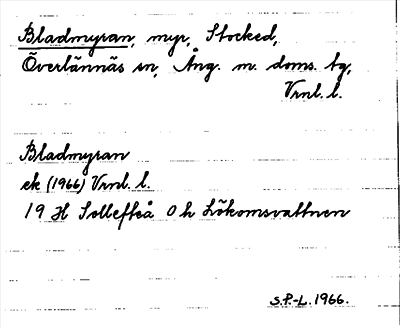 Bladmyran, myr, Stocked,
Överlännäs sn, Ång. m. doms. tg,
Vrnl. l.
Bladmyran
ek (1966) Vrnl. l.
19 H Sollefteå 0 h Lökomsvattnen
S.P-L. 1966.